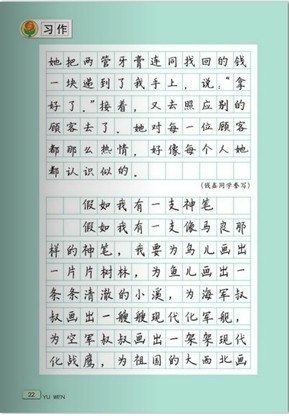 习作
她把两管牙膏连同找回的钱
一块递到了我手上，说：“拿
好了。”接着，又去照应别的
顾客去了。她对每一位顾客
都那么热情，好像每个人她
都认识似的。
（钱磊同学誊写）
假如我有一支神笔
假如我有一支像马良那
样的神笔，我要为鸟儿画出
一片片树林，为鱼儿画出一
条条清澈的小溪，为海军叔
叔画出一艘艘现代化军舰，
为空军叔叔画出一架架现代
化战鹰，为祖国的大西北画
22 YU WEN